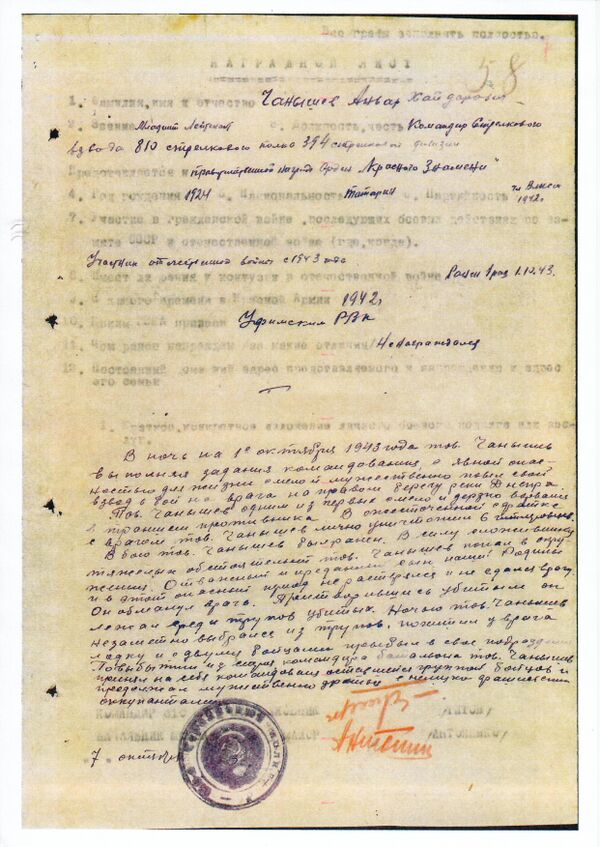 Все графы заполнять полностью.
НАГРАДНЫЙ ЛИСТ
58
1. Фамилия, имя и отчество Чанышев Анвар Хайдарович
2. Звание Младший Лейтенант 3. Должность, часть Командир Стрелкового
взвода 810 стрелкового полка 394 стрелковой дивизии
Представляется к правительственной награде Орден "Красного Знамени"
4. Год рождения 1924 5. Национальность татарин 6. Партийность чл. ВЛКСМ
1942г.
7. Участие в гражданской войне, последующих боевых действиях по за-
щите СССР и отечественной войне (где, когда).
Участник отечественной войны с 1943 года
8. Имеет ли ранения и контузии в отечественной войне Ранен 1 раз 1.10.43.
9. С какого времени в Красной Армии 1942г
10. Каким РВК призван Уфимским РВК
11. Чем ранее награжден за какие отличия Не награждался
12. Постоянный домашний адрес представляемого к награждению и адрес
его семьи
1. Краткое, конкретное изложение личного боевого подвига или зас-
луг.
В ночь на 1е октября 1943 года тов. Чанышев
выполняя задания командования, с явной опас-
ностью для жизни смело и мужественно повел свой
взвод в бой на врага на правом берегу реки Днепра.
Тов. Чанышев одним из первых смело и дерзко ворвался
в траншеи противника. В ожесточенной схватке
с врагом тов. Чанышев лично уничтожил 6 гитлеровцев.
В бою тов. Чанышев был ранен. В силу сложившихся
тяжелых обстоятельств тов. Чанышев попал в окру-
жение. Отважный и преданный сын нашей Родины
и в этот опасный период не растерялся и не сдался врагу.
Он обманул врага. Притворившись убитым он
лежал среди трупов убитых. Ночью тов. Чанышев
незаметно выбрался из трупов, похитил у врага
лодку и с двумя бойцами прибыл в свое подразделение
По выбытии из строя командира батальона тов. Чанышев
принял на себя командование оставшейся группой бойцов и
продолжал мужественно драться с немецко фашистскими
оккупантами.
КОМАНДИР 810
7 октября